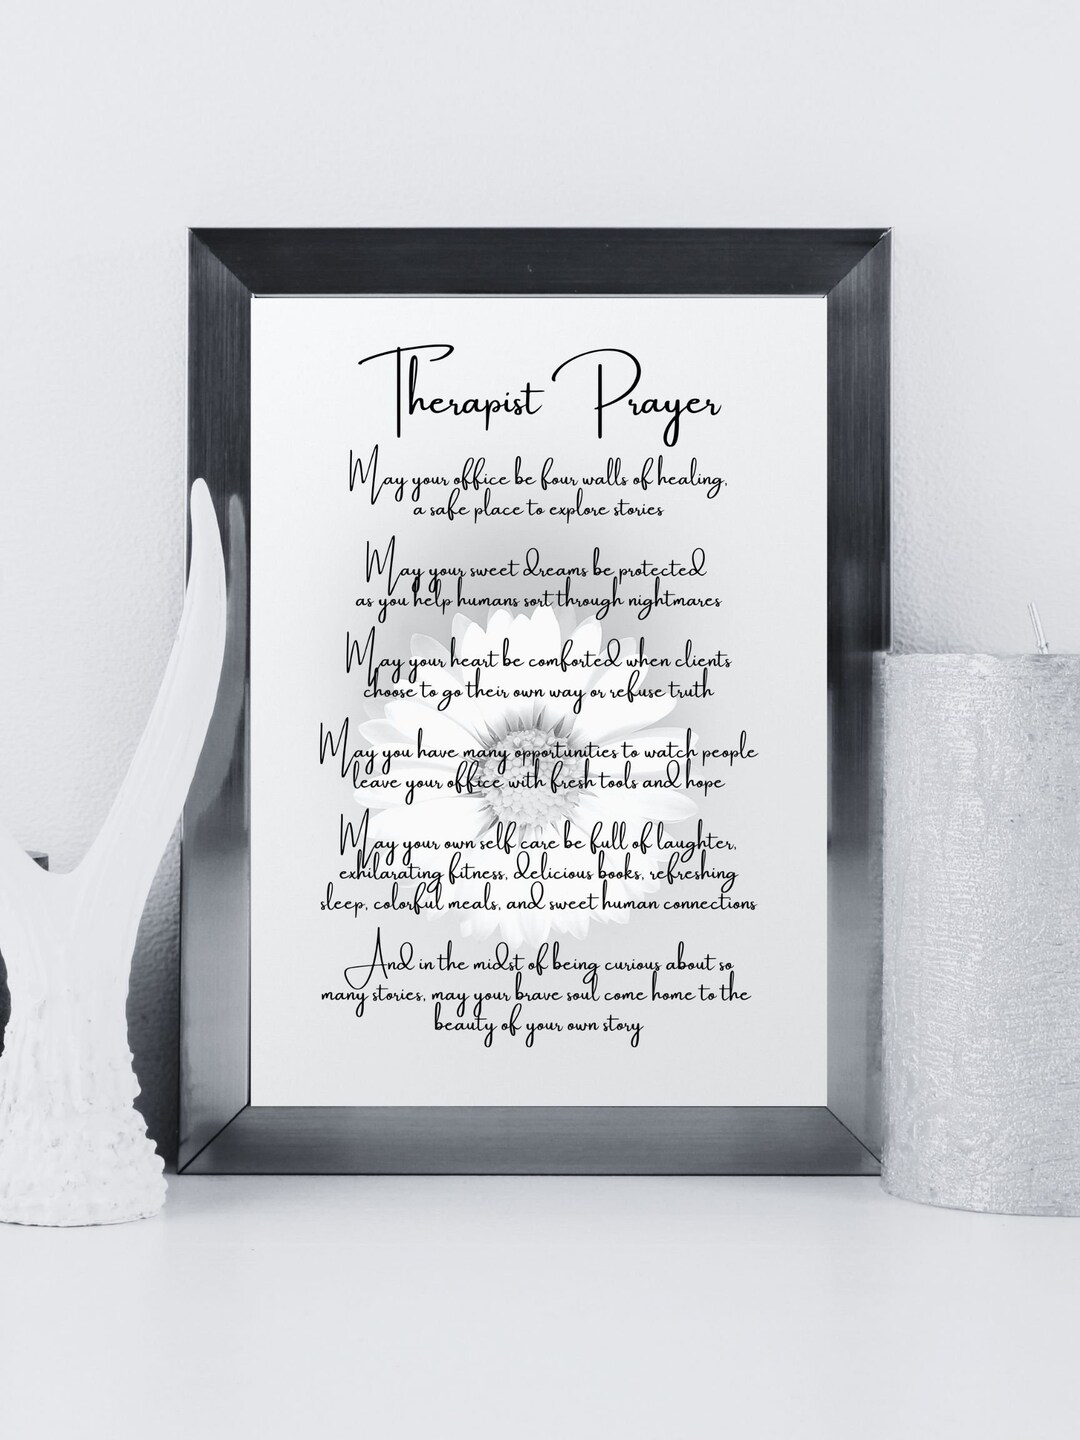 Therapist Prayer
May your office be four walls of healing,
a safe place to explore stories
May your sweet dreams be protected
as you help humans sort through nightmares
May your heart be comforted when clients
choose to go their own way or refuse truth
May you have many opportunities to watch people
leave your office with fresh tools and hope
May your own self care be full of laughter,
exhilarating fitness, delicious books, refreshing
sleep, colorful meals, and sweet human connections
And in the midst of being curious about so
many stories, may your brave soul come home to the
beauty of your own story